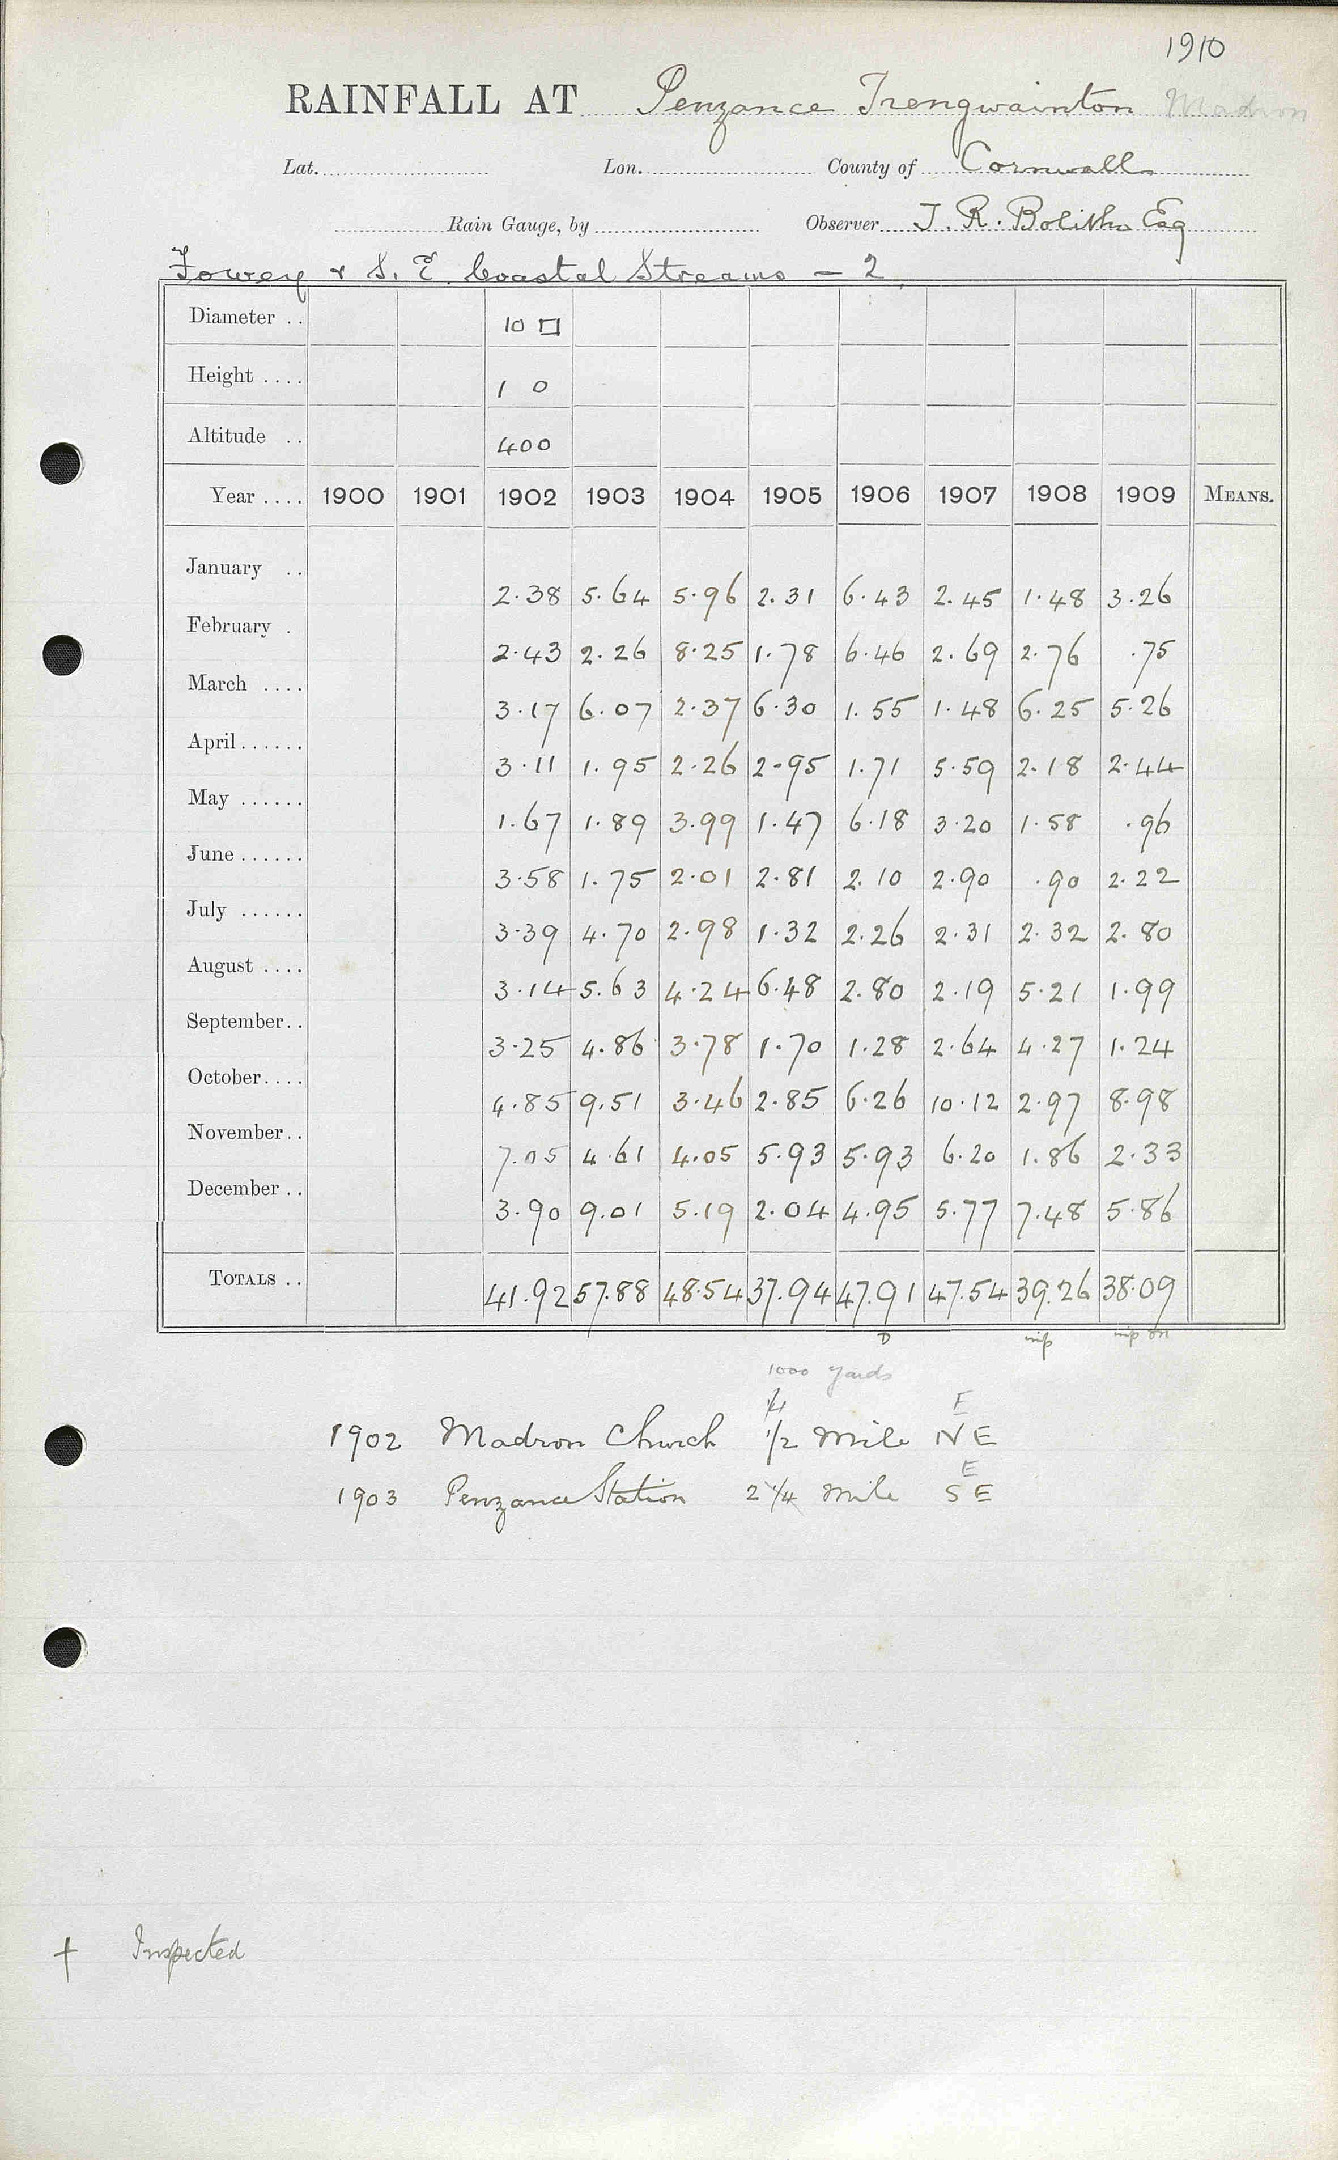 1910
RAINFALL AT Penzance Trengwainton Madron
Lat. Lon. County of Cornwall
Rain Gauge, by Observer T. R. Bolitho Esq
Fowey & S. E. Coastal Streams - 2
Diameter .. 10 □
Height .... 1 0
Altitude .. 400
Year .... 1900 1901 1902 1903 1904 1905 1906 1907 1908 1909 MEANS.
January .. 2.38 5.64 5.96 2.31 6.43 2.45 1.48 3.26
February . 2.43 2.26 8.25 1.78 6.46 2.69 2.76 .75
March .... 3.17 6.07 2.37 6.30 1.55 1.48 6.25 5.26
April...... 3.11 1.95 2.26 2.95 1.71 5.59 2.18 2.44
May ...... 1.67 1.89 3.99 1.47 6.18 3.20 1.58 .96
June...... 3.58 1.75 2.01 2.81 2.10 2.90 .90 2.22
July ...... 3.39 4.70 2.98 1.32 2.26 2.31 2.32 2.80
August .... 3.14 5.63 4.24 6.48 2.80 2.19 5.21 1.99
September.. 3.25 4.86 3.78 1.70 1.28 2.64 4.27 1.24
October.... 4.85 9.51 3.46 2.85 6.26 10.12 2.97 8.98
November.. 7.05 4.61 4.05 5.93 5.93 6.20 1.86 2.33
December .. 3.90 9.01 5.19 2.04 4.95 5.77 7.48 5.86
TOTALS .. 41.92 57.88 48.54 37.94 47.91 47.54 39.26 38.09
1000 yards
E
1902 Madron Church 1/2 Mile NE
E
1903 Penzance Station 2 1/4 Mile SE
† Inspected